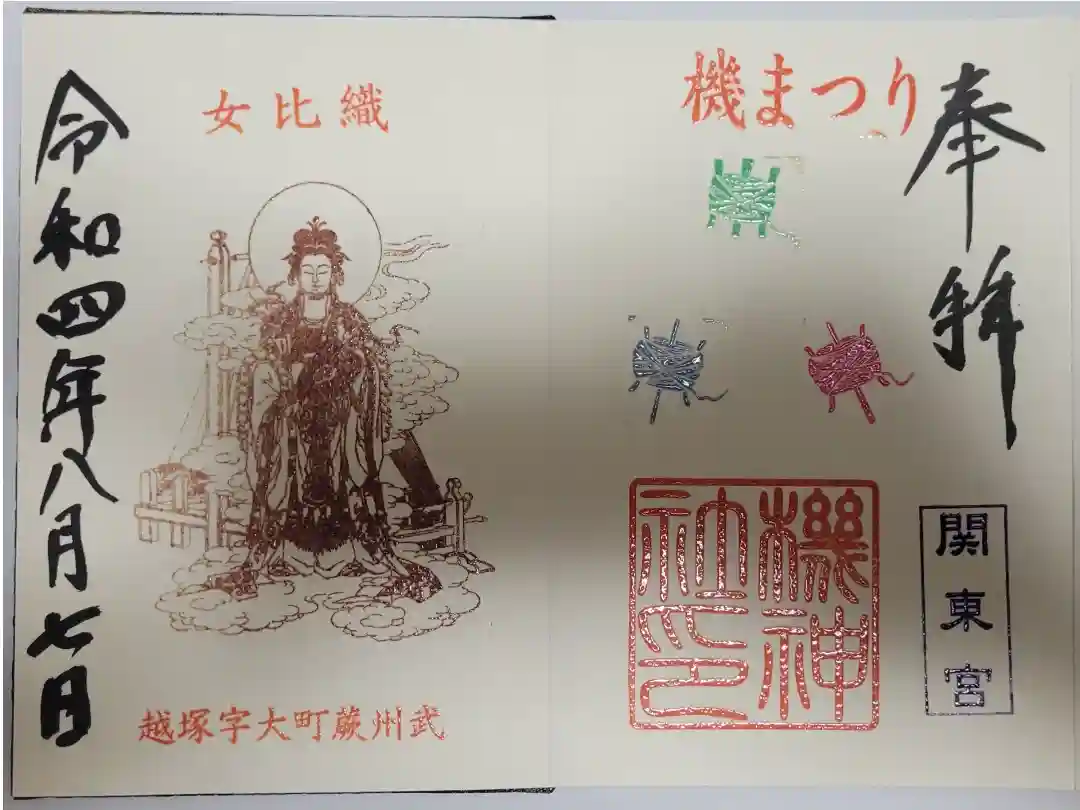 奉拝
機まつり
関東宮
機神
社印
織比女
武州蕨町大字塚越
令和四年八月七日